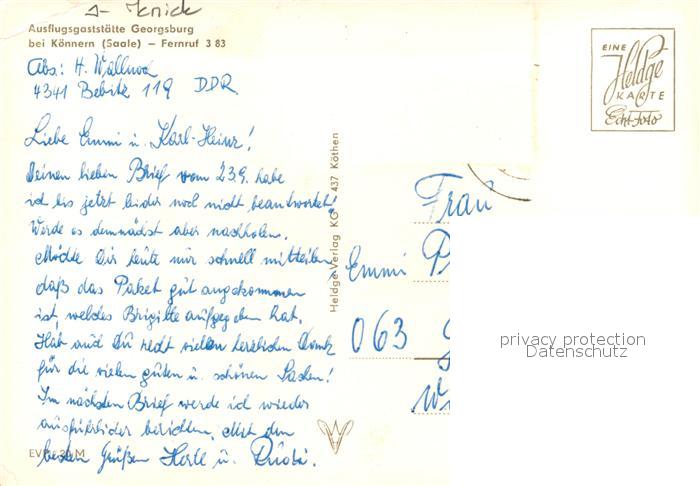 Ausflugsgaststätte Georgsburg
bei Könnern (Saale) – Fernruf 3 83
Abs.: H.
4341 Bebitz 119 DDR
Liebe Emmi u. Karl-Heinz!
Deinen lieben Brief vom 23.9. habe
ich bis jetzt leider noch nicht beantwortet!
Werde es demnächst aber nachholen.
Möchte Dir heute nur schnell mitteilen
daß das Paket gut angekommen
ist, welches Brigitte aufgegeben hat.
Hab auch Du recht vielen herzlichen Dank
für die vielen guten u. schönen Sachen!
Im nächsten Brief werde ich wieder
ausführlicher berichten. Mit den
besten Grüßen u.
Heldge-Verlag KG 437 Köthen
EINE
Heldge
KARTE
Echt Foto
Frau
Emmi P
063
W
privacy protection
Datenschutz